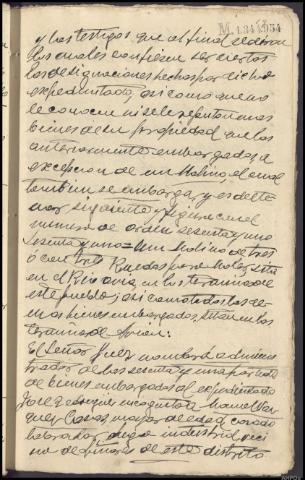 M. 134.934
y los testigos que al final
los cuales confiesan ser ciertos
las designaciones hechas por dicho
expedientado, así como que no
le conocen ni se le reputan mas
bienes de su propiedad que los
anteriormente embargados, a
excepcion de un Molino, el cual
tambien se embarga y es del te
nor siguiente y figura con el
numero de orden sesenta y uno
Sesenta y uno = Un Molino de tres
o con tres Ruedas para moler, sita
en el Rio, en los terminos de
este pueblo; asi como todos los de
mas bienes embargados, sitan en los
terminos de
El Señor Juez nombra adminis
trador de los sesenta y una partidas
de bienes embargados al expedientado
Jose a Manuel Vaz
quez Casas, mayor de edad, casado
labrador, industrial, veci
no de de este distrito